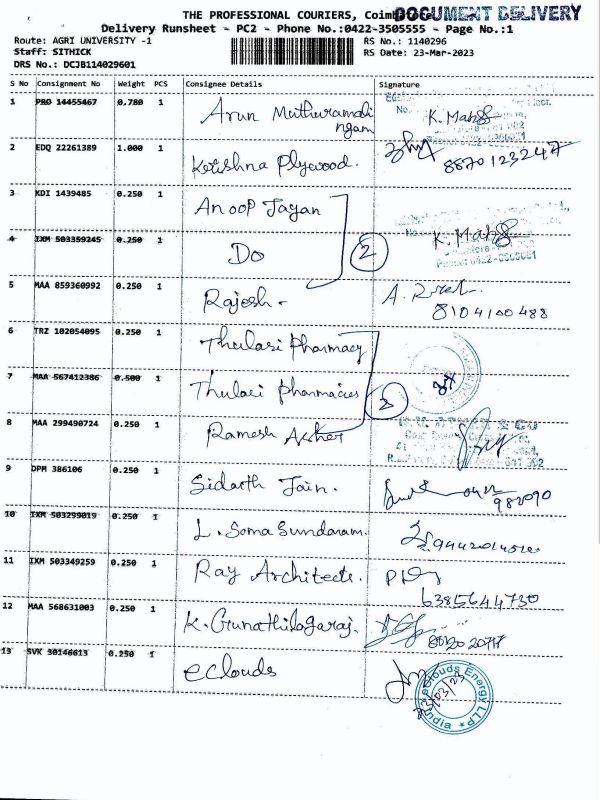 THE PROFESSIONAL COURIERS, Coimbatore
DOCUMENT DELIVERY
Delivery Runsheet - PC2 - Phone No.:0422-3505555 - Page No.:1
Route: AGRI UNIVERSITY -1
RS No.: 1140296
Staff: SITHICK
RS Date: 23-Mar-2023
DRS No.: DCJB114029601
S No Consignment No Weight PCS Consignee Details Signature
1 PRO 14455467 0.780 1 Arun Muthuramali
ngam
K. Mahg
2 EDQ 22261389 1.000 1 Krishna Plywood.
8870123247
3 KDI 1439485 0.250 1 Anoop Jayan
4 IXM 503359245 0.250 1 Do 2 K. Mahg
5 MAA 859360992 0.250 1 Rajesh - A.
8104100488
6 TRZ 102054095 0.250 1 Thulasi Pharmacy
7 MAA 567412386 0.500 1 Thulasi Pharmacies
8 MAA 299490724 0.250 1 Ramesh
9 DPM 386106 0.250 1 Sidarth Jain.
982090
10 IXM 503299019 0.250 1 L. Soma Sundaram.
11 IXM 503349259 0.250 1 Ray Architects.
6385644730
12 MAA 568631003 0.250 1 K. Gunathilagaraj.
13 SVK 30146613 0.250 1 eclouds
23/03/23
eClouds Energy LLP
India